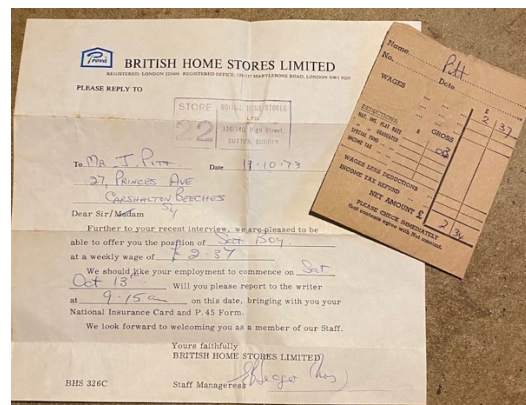 Prova
BRITISH HOME STORES LIMITED
REGISTERED: LONDON REGISTERED OFFICE: MARYLEBONE ROAD, LONDON NW1
PLEASE REPLY TO
STORE
22
BRITISH HOME STORES
LTD
High Street,
SUTTON, SURREY
To Mr J. Pitt Date 9.10.73
27, Princes Ave
Carshalton Beeches
Sy
Dear Sir/Madam
Further to your recent interview, we are pleased to be
able to offer you the position of Sat Boy
at a weekly wage of £2.37
We should like your employment to commence on Sat
Oct 13th Will you please report to the writer
at 9.15am on this date, bringing with you your
National Insurance Card and P.45 Form.
We look forward to welcoming you as a member of our Staff.
Yours faithfully
BRITISH HOME STORES LIMITED
Staff Manageress (Mrs)
BHS 326C
Name Pitt
No. Date
WAGES £
GROSS 2 37
DEDUCTIONS
NAT. INS. FLAT RATE
" " GRADUATED
SPECIAL FUND
INCOME TAX
WAGES LESS DEDUCTIONS
INCOME TAX REFUND
NET AMOUNT £ 2 36
PLEASE CHECK IMMEDIATELY
that contents agree with Net amount.